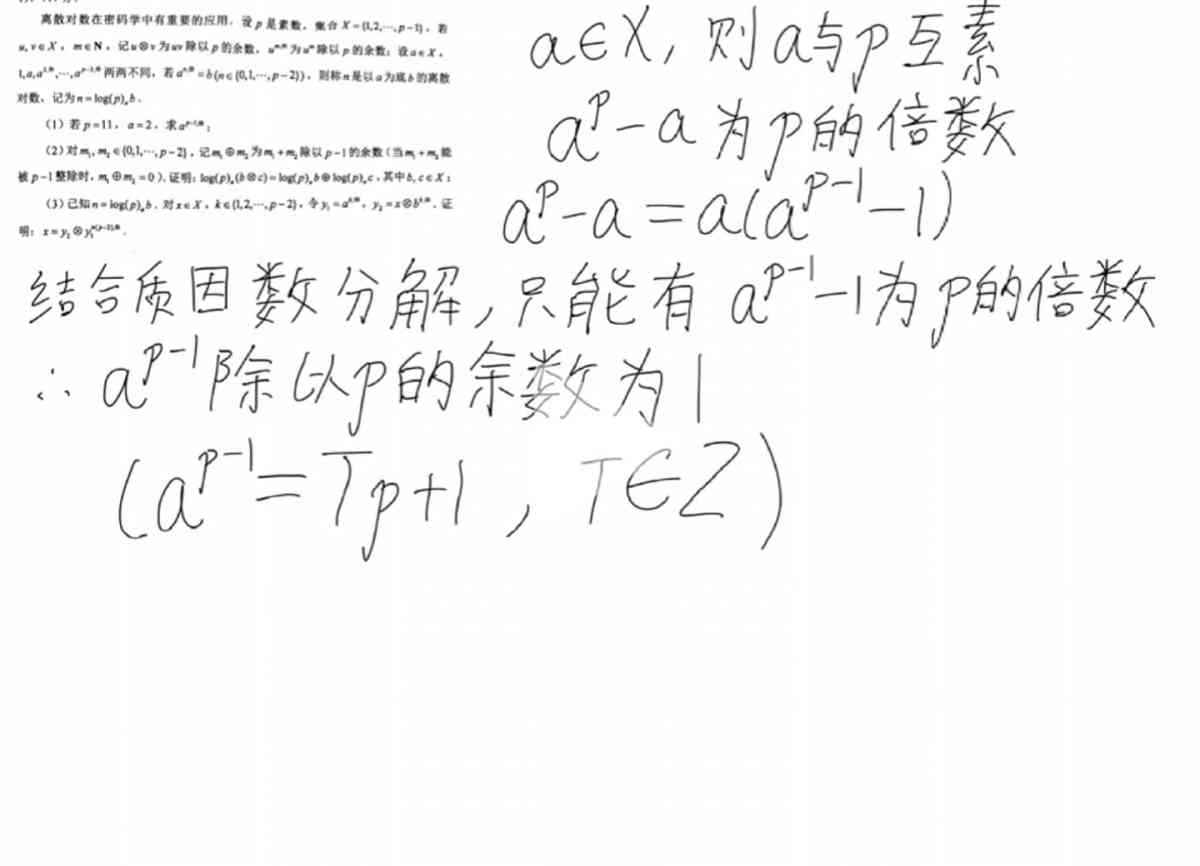 离散对数在密码学中有重要的应用．设p是素数，集合X={1,2,⋯,p−1}，若
u,v∈X，m∈N，记u⊗v为uv除以p的余数，u^{m,⊗}为u^m除以p的余数；设a∈X，
1,a,a^{2,⊗},⋯,a^{p−2,⊗}两两不同，若a^{n,⊗}=b(n∈{0,1,⋯,p−2})，则称n是以a为底b的离散
对数，记为n=log(p)_a b．
（1）若p=11，a=2，求a^{p−1,⊗}；
（2）对m₁,m₂∈{0,1,⋯,p−2}，记m₁⊕m₂为m₁+m₂除以p−1的余数（当m₁+m₂能
被p−1整除时，m₁⊕m₂=0）．证明：log(p)_a(b⊗c)=log(p)_a b⊕log(p)_a c，其中b,c∈X；
（3）已知n=log(p)_a b．对x∈X，k∈{1,2,⋯,p−2}，令y₁=a^{k,⊗}，y₂=x⊗b^{k,⊗}．证
明：x=y₂⊗y₁^{n(p−2),⊗}．
a∈X，则a与p互素
a^p−a为p的倍数
a^p−a=a(a^{p−1}−1)
结合质因数分解，只能有a^{p−1}−1为p的倍数
∴a^{p−1}除以p的余数为1
(a^{p−1}=Tp+1，T∈Z)